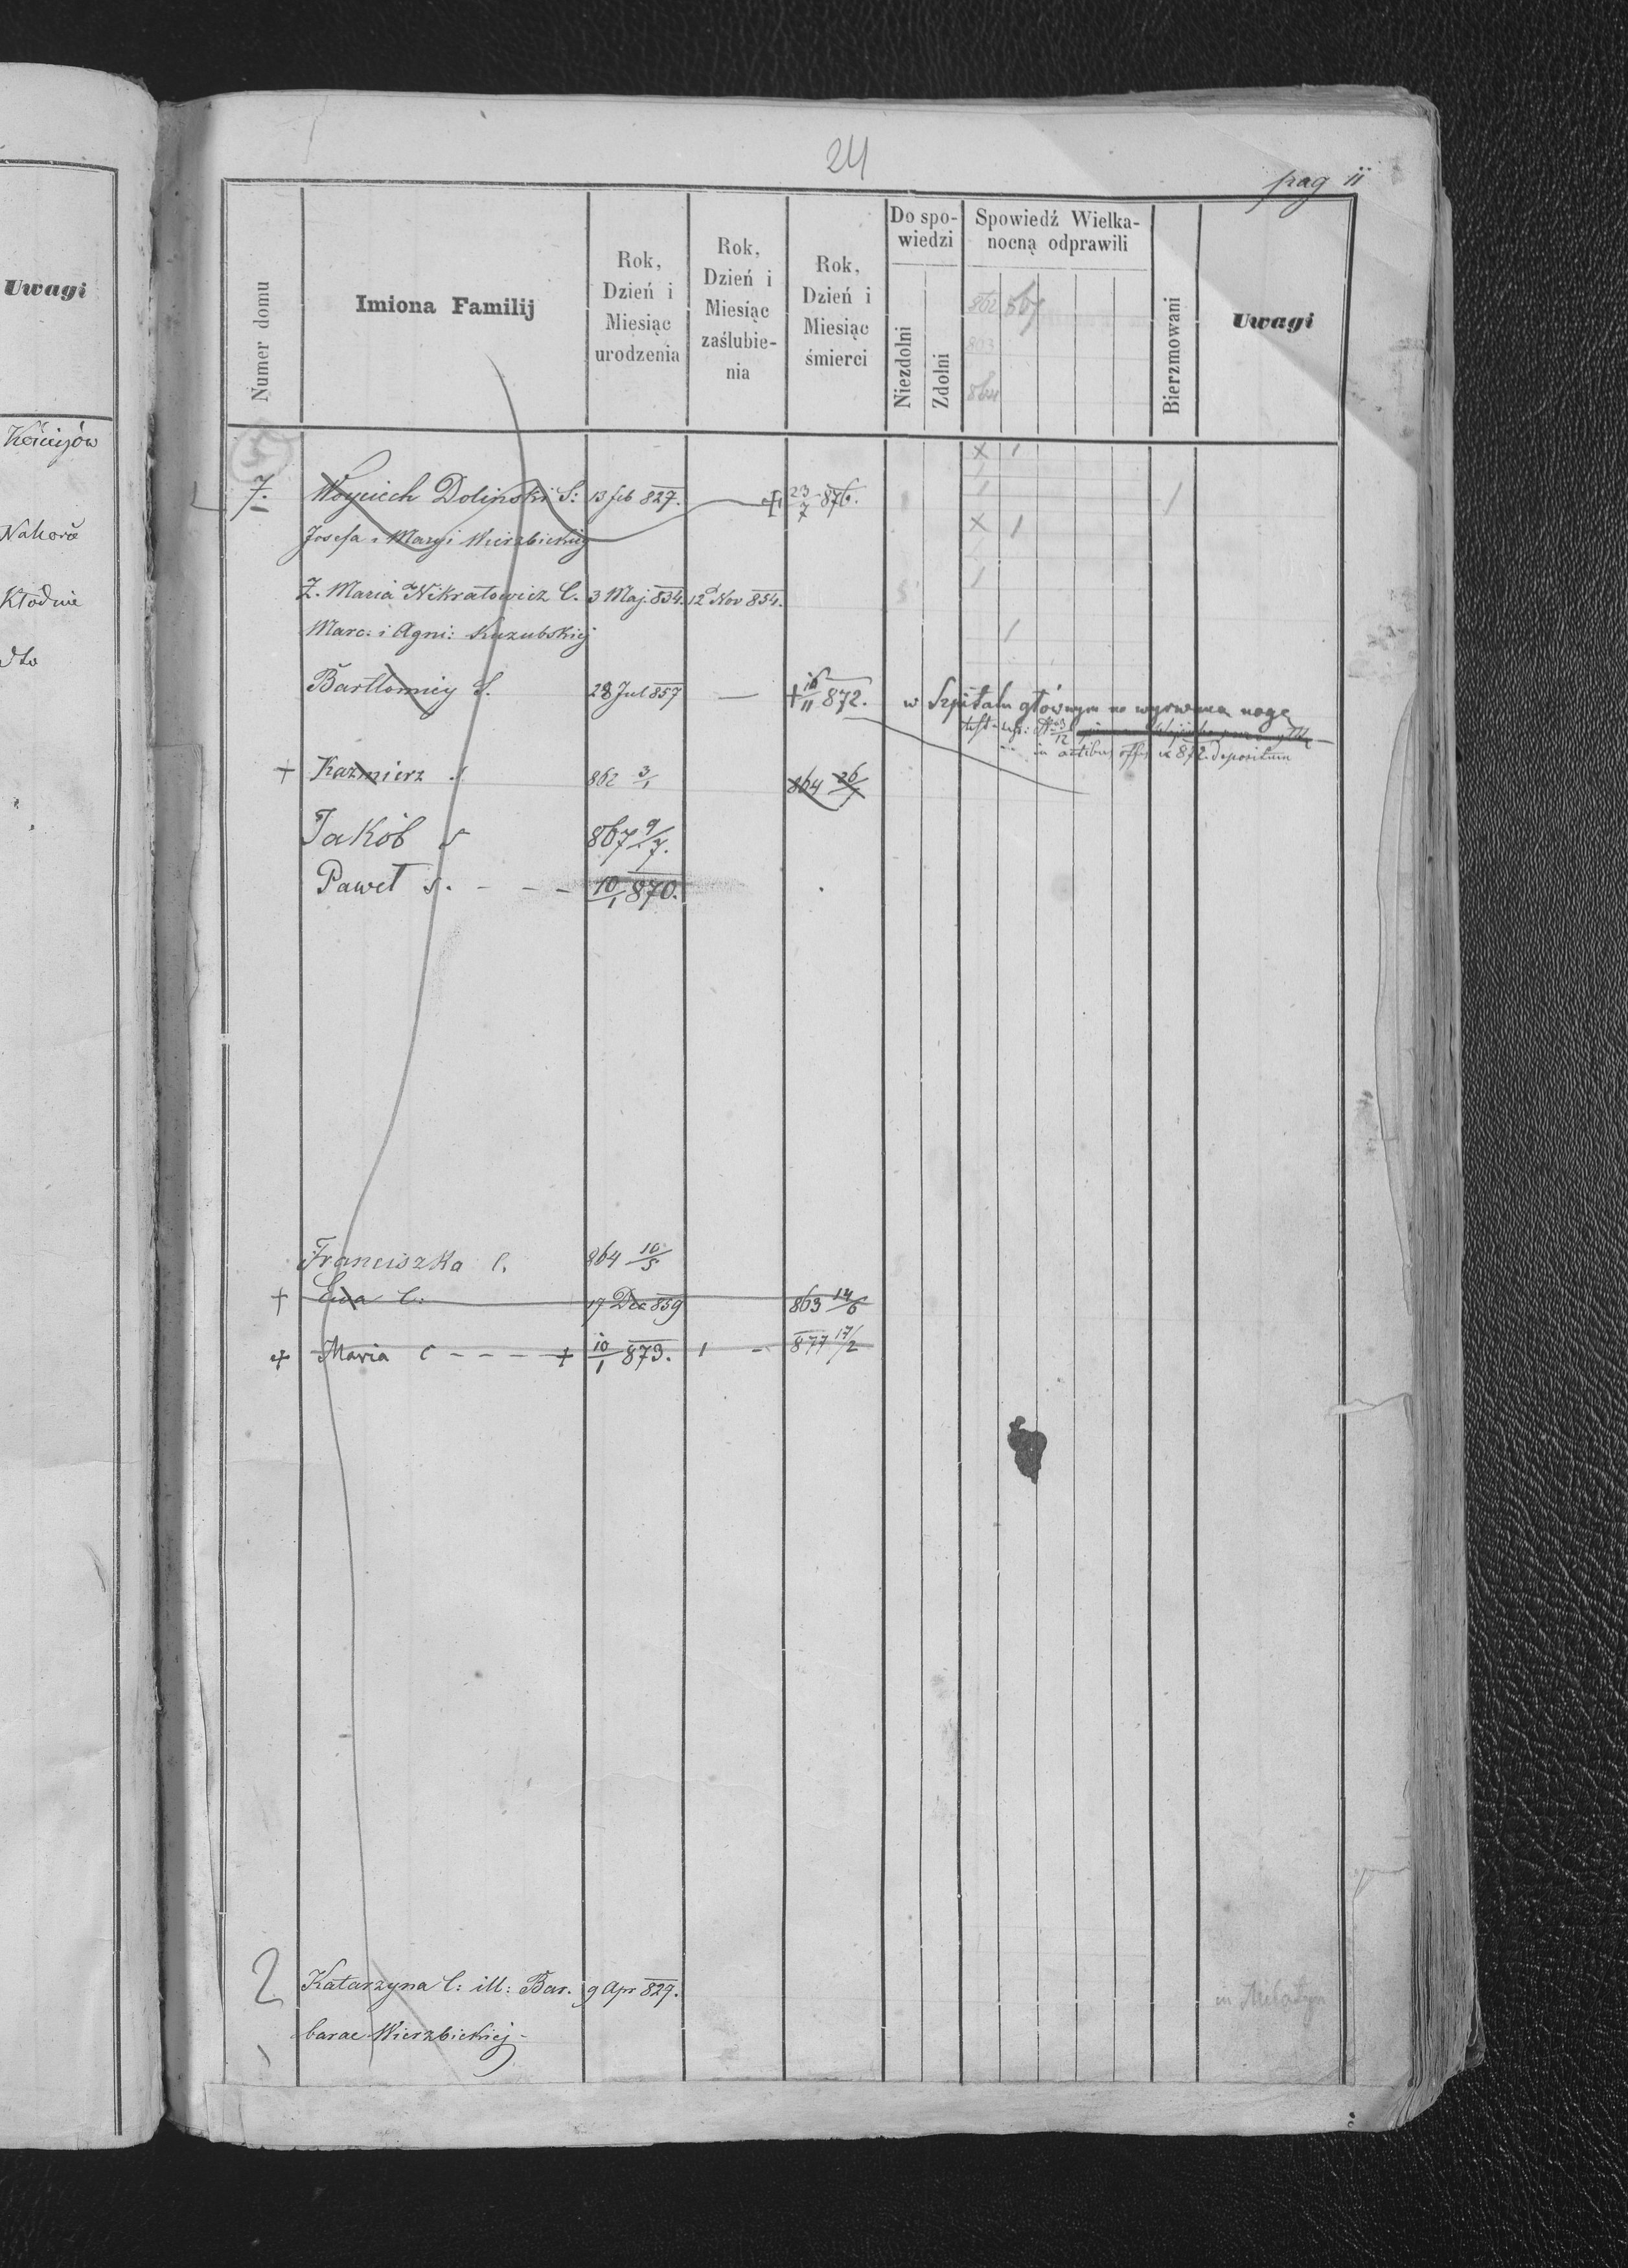 24
pag 11
Uwagi
Numer domu
Imiona Familij
Rok,
Dzień i
Miesiąc
urodzenia
Rok,
Dzień i
Miesiąc
zaślubie-
nia
Rok,
Dzień i
Miesiąc
śmierci
Do spo-
wiedzi
Niezdolni
Zdolni
Spowiedź Wielka-
nocną odprawili
862 867
863
864
Bierzmowani
Uwagi
Kłodnie
dto
5
x 1
7. Woyciech Dolinski S: 13 feb 827. + 23/7 876. 1 1
Josefa i Maryi Wierzbickiej x 1
Ż. Maria Nikratowicz C. 3 Maj. 834. 12 Nov 854. 1
Marc: i Agni: Kuzubskiej 1
Bartłomiey S. 28 Jul 857 — + 16/11 872. w Szpitalu głównym na wyrwana nogę
in actibus offi. ex 872. depositum
+ Kazmierz S 862 3/1 864 26/1
Jakób S 867 9/7.
Paweł S. - - - 10/1 870.
Franciszka C. 864 10/5
+ Ewa C: 17 Dec 859 863 14/6
+ Maria C - - - - + 10/1 873. 1 - 877 17/2
2 Katarzyna C: ill: Bar. 9 Apr 829.
barae Wierzbickiej -